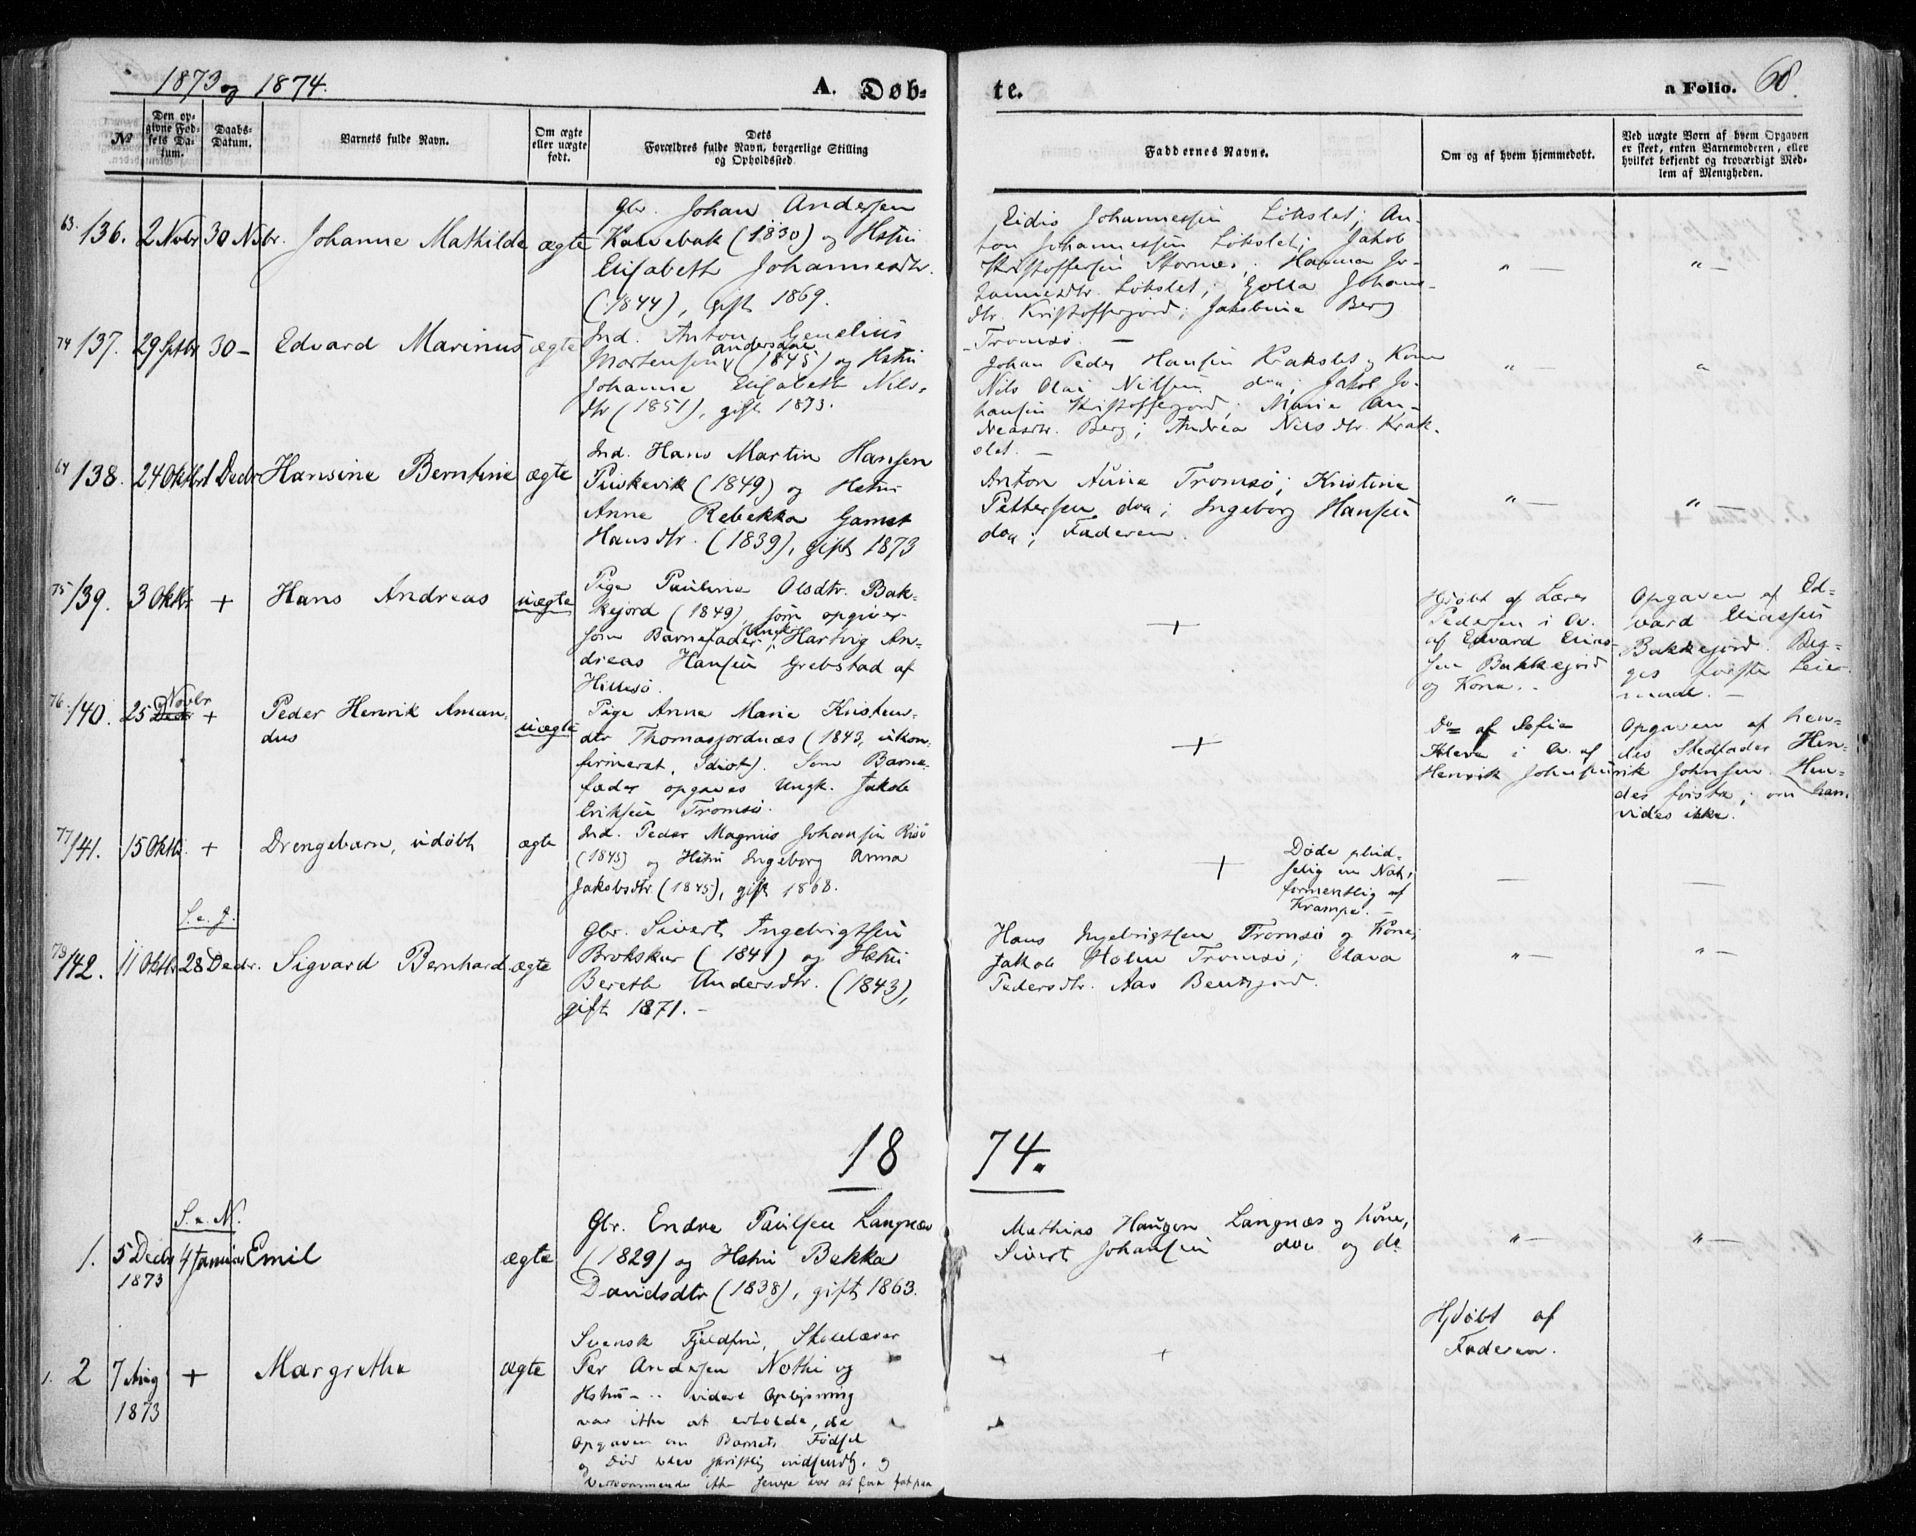 1873 og 1874.
A. Døb-
te.
a Folio. 68.
№
Den op-
givne Fød-
sels Da-
tum.
Daabs-
Datum.
Barnets fulde Navn.
Om ægte
eller uægte
født.
Dets
Forældres fulde Navn, borgerlige Stilling
og Opholdssted.
Faddernes Navne.
Om og af hvem hjemmedøbt.
Ved uægte Børn af hvem Opgaven
er skeet, enten Barnemoderen, eller
hvilket bekjendt og troværdigt Med-
lem af Menigheden.
63.
136. 2 Novbr 30 Nvbr. Johanne Mathilde ægte
Gbr. Johan Andersen
Kalvebak (1830) og Hstru
Elisabeth Johannesdtr.
(1844), gift 1869.
Eidis Johannessen Løkslet; An-
ton Johannessen Løkslet; Jakob
Kristoffersen Stornes; Hanna Jo-
hannesdtr. Løkslet; Golla Johans-
dtr. Kristofferjord; Jakobine Berg
Tromsø. —
" —
" —
74
137. 29 Sptbr 30 — Edvard Marinus ægte
Ind. Anton Genelius
Mortensen Andersdal (1845) og Hstru
Johanna Elisabeth Nils-
dtr (1851), gift 1873.
Johan Peder Hansen Krakslet og Kone
Nils Olai Nilsen do; Jakob Jo-
hansen Kristofferjord; Marie An-
dreasdtr. Berg; Andrea Nilsdtr. Krak-
slet. —
" —
"
64
138. 24 Oktbr 1 Decbr Hansine Berntine ægte
Ind. Hans Martin Hansen
(1849) og Hstru
Anne Rebekka Gamst
Hansdtr. (1839), gift 1873
Anton Aune Tromsø; Kristine
Pettersen doa; Ingeborg Hansen
doa; Faderen.
" —
" —
75
139. 3 Oktbr + Hans Andreas uægte
Pige Paulina Olsdtr. Bak-
kejord (1849), som opgiver
som Barnefader, Ungk. Hartvig An-
dreas Hansen Grebstad af
Hillesø.
+
Hjdøbt af Lærer
Pedersen i Ov.
af Edvard Elias-
sen Bakkejord
og Kone. —
Opgaven af Ed-
vard Eliassen
Bakkejord. Beg-
ges første Leier-
maal. —
76
140. 25 Decbr Novbr + Peder Henrik Aman-
dus uægte
Pige Anne Marie Kristens-
dtr Thomasjordnæs (1843, ukon-
firmeret, Idiot). Som Barne-
fader opgaves Ungk. Jakob
Eriksen Tromsø.
+
Do af Sofie
i Ov. af
Henrik Johnsen
Opgaven af hen-
des Stedfader Hen-
rik Johnsen. Hen-
des første; om hans
vides ikke.
77
141. 15 Oktbr. + Drengebarn, udøbt ægte
Ind. Peder Magnus Johansen Risø
(1845) og Hstru Ingeborg Anna
Jakobsdtr. (1845), gift 1868.
+
Døde plud-
selig en Nat,
formentlig af
Krampe.
—
—
S. e. J.
78
142. 11 Oktbr 28 Decbr. Sigvard Bernhard ægte
Gbr. Sivert Ingebrigtsen
Brokskar (1841) og Hstru
Bereth Andersdtr. (1843),
gift 1871. —
Hans Ingebrigtsen Tromsø og Kone;
Jakob Holm Tromsø; Elava
Pedersdtr. Aas Bentsjord.
" —
" —
18 74.
S. e. N.
1. 5 Decbr
1873 4 Januar Emil ægte
Gbr. Endre Paulsen Langnæs
(1829) og Hstru Bekka
Davidsdtr (1838), gift 1863.
Mathias Haugen Langnæs og Kone,
Sivert Johansen doa og do
" —
" —
1. 2 7 Aug
1873 + Margrethe ægte
Svensk Fjeldfin, Skolelærer
Per Andersen Nothi og
Hstru — .. videre Oplysning
var ikke at erholde, da
Opgaven om Barnets Fødsel
og Død blev skriftlig indsendt, og
Vedkommende ikke længer var at faa fat paa
+
Hjdøbt af
Faderen.